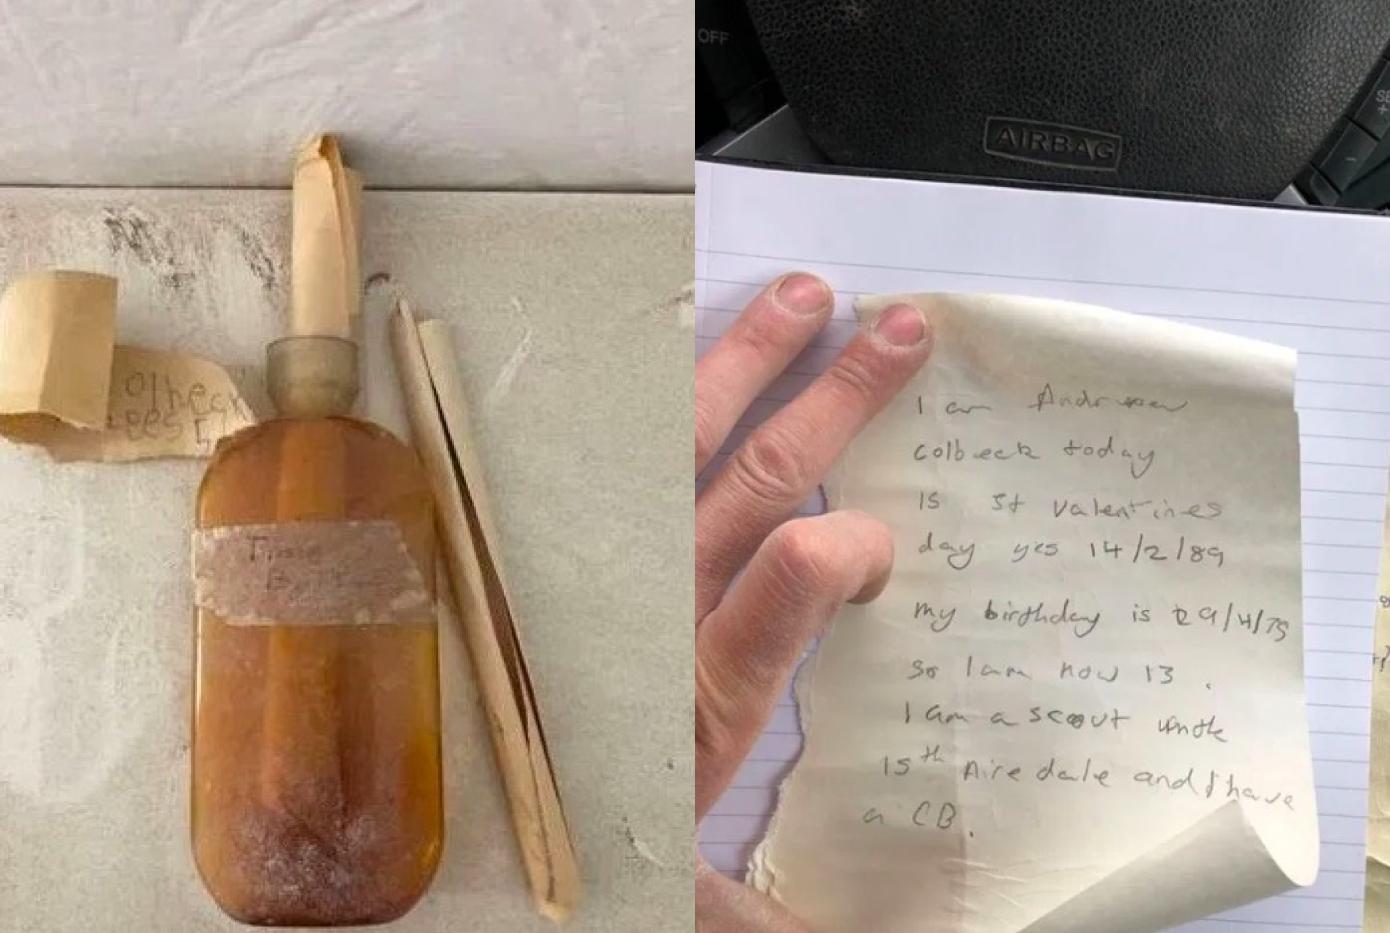 other
Time
OFF
AIRBAG
I am Andrew
colbeck today
is st valentines
day yes 14/2/89
my birthday is 29/4/75
so I am now 13.
I am a scout in the
15th Airedale and I have
a CB.